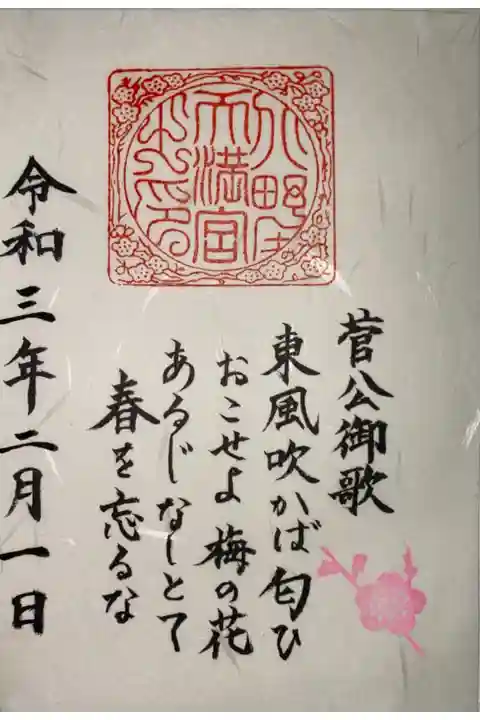 天満宮
之印
菅公御歌
東風吹かば匂ひ
おこせよ梅の花
あるじなしとて
春を忘るな
令和三年二月一日